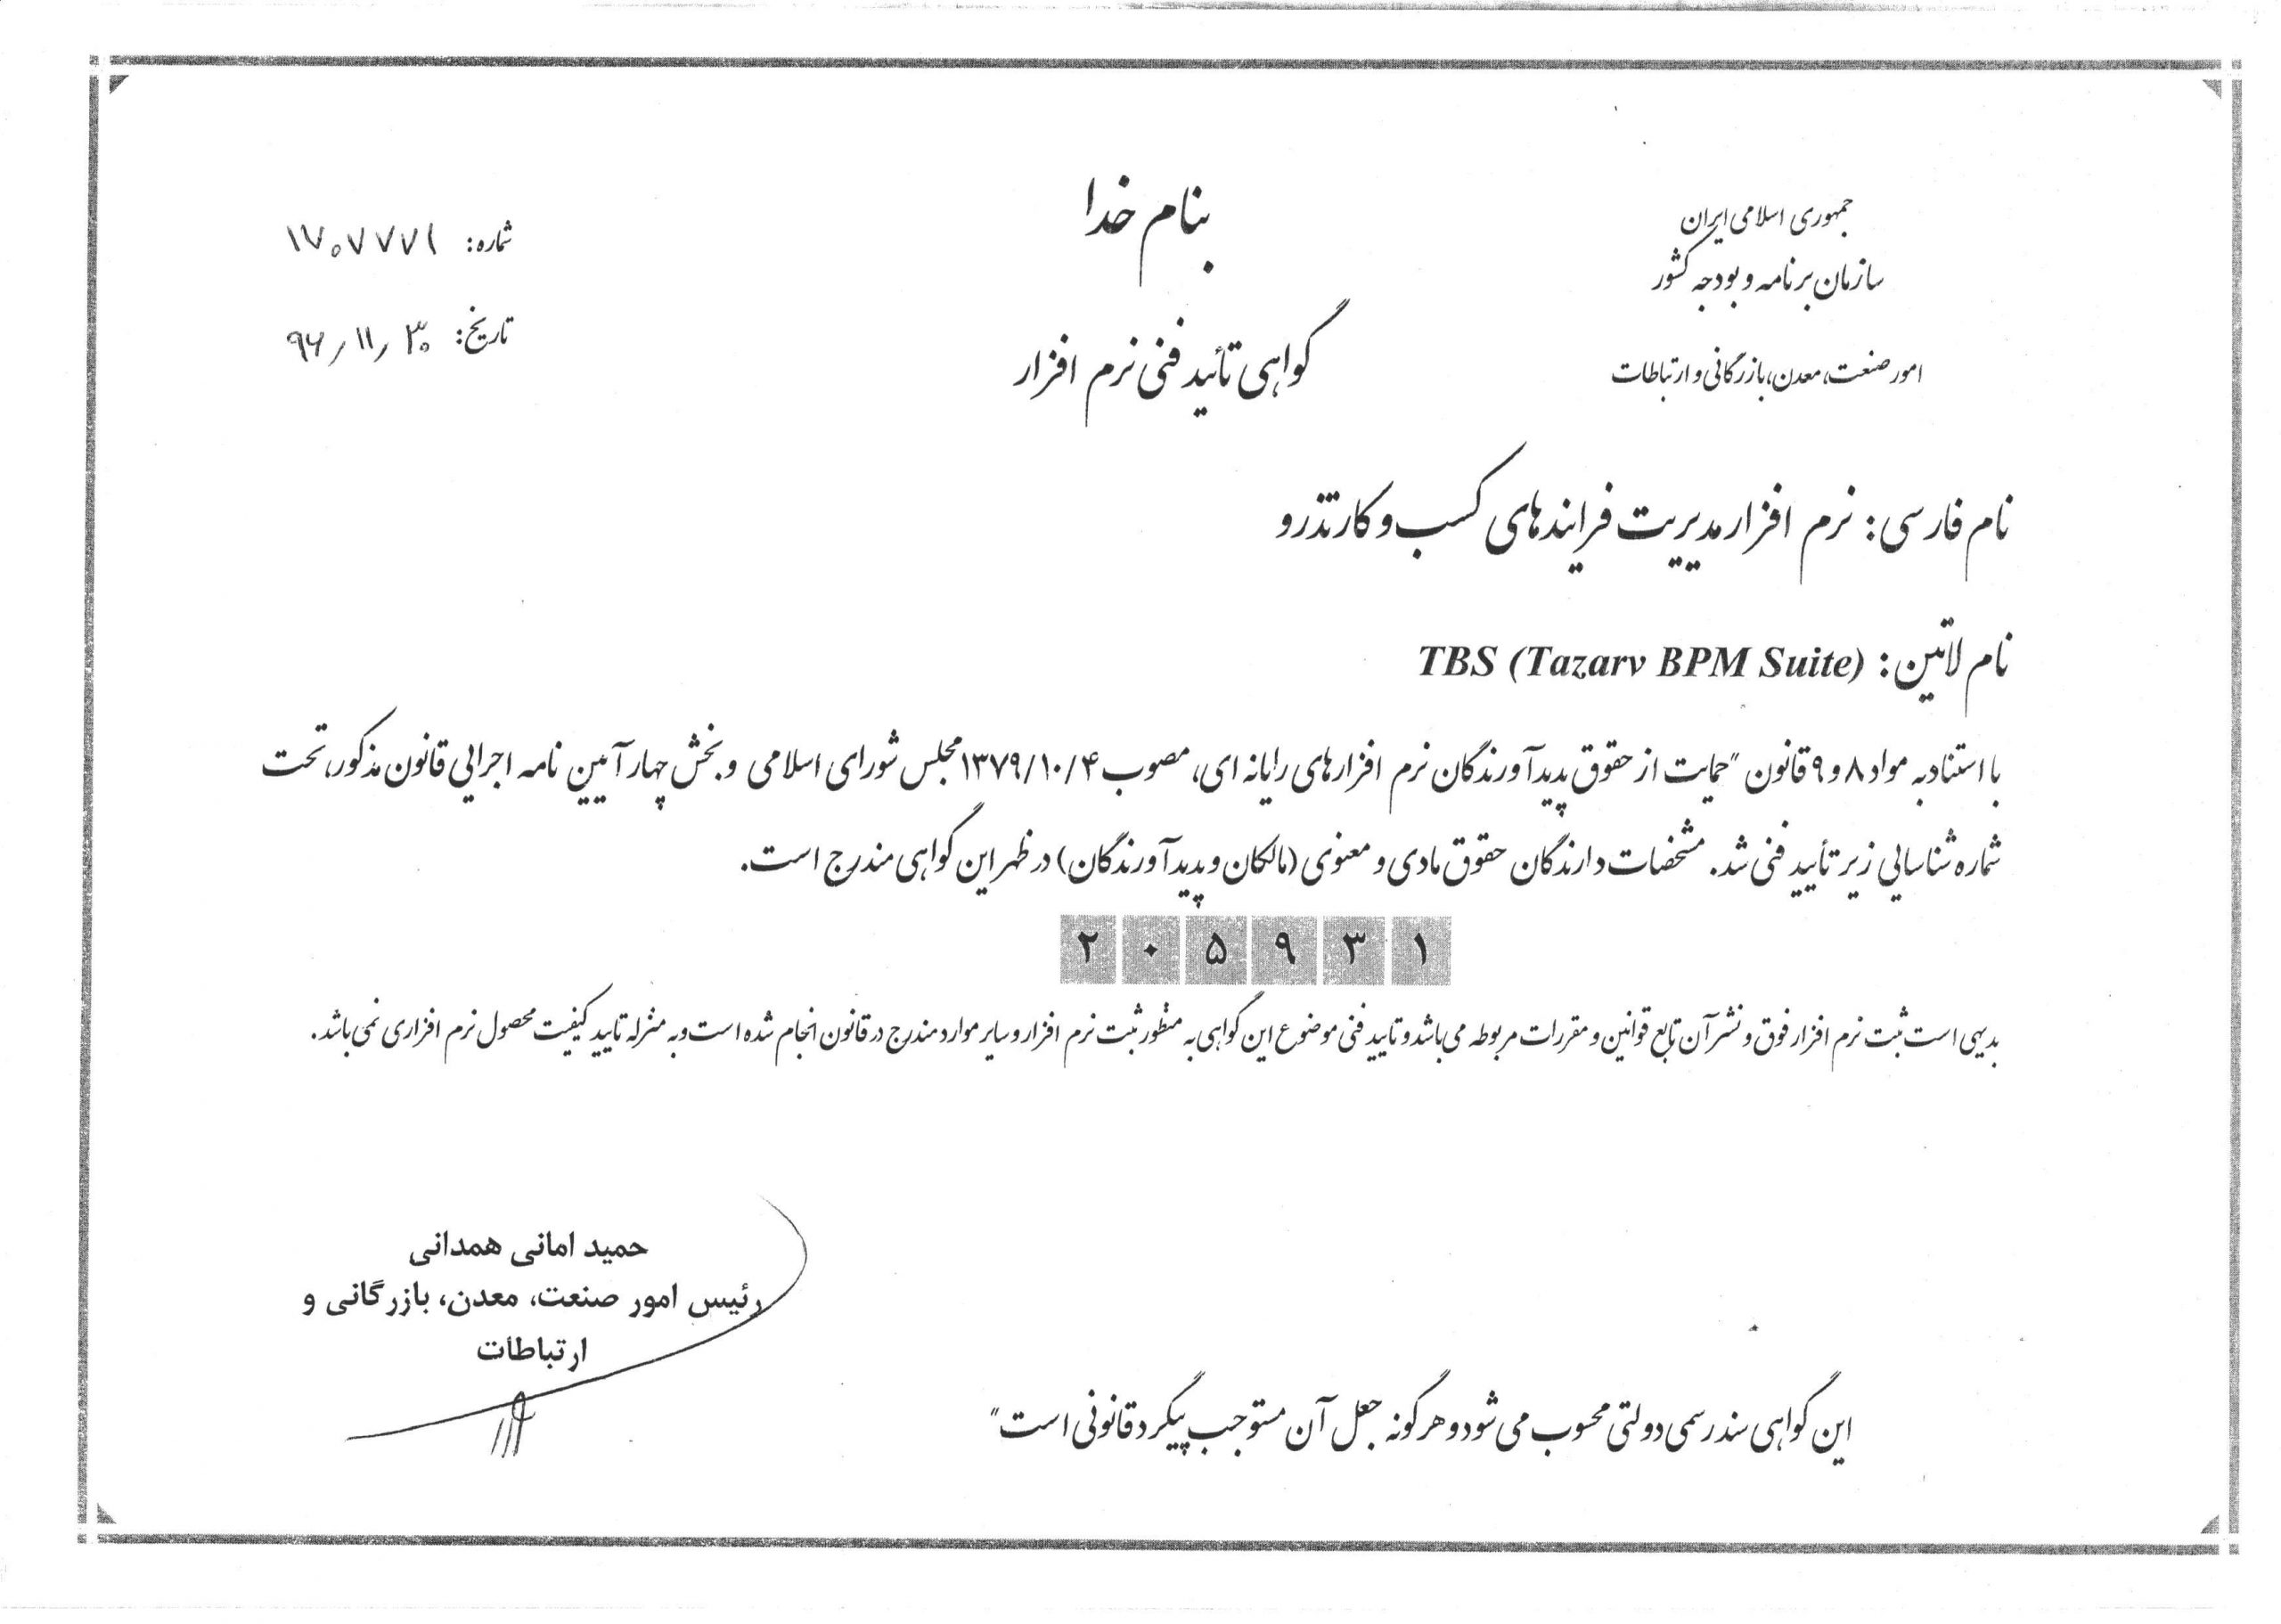 بنام خدا
جمهوری اسلامی ایران
سازمان برنامه و بودجه کشور
امور صنعت، معدن، بازرگانی و ارتباطات
شماره: ۱۷۰۷۷۷۱
تاریخ: ۹۶/۱۱/۳۰
گواهی تائید فنی نرم افزار
نام فارسی: نرم افزار مدیریت فرایندهای کسب و کار تذرو
نام لاتین: TBS (Tazarv BPM Suite)
با استناد به مواد ۸ و ۹ قانون "حمایت از حقوق پدیدآورندگان نرم افزارهای رایانه ای، مصوب ۱۳۷۹/۱۰/۴ مجلس شورای اسلامی و بخش چهار آیین نامه اجرایی قانون مذکور، تحت
شماره شناسایی زیر تأیید فنی شد. مشخصات دارندگان حقوق مادی و معنوی (مالکان و پدیدآورندگان) در ظهر این گواهی مندرج است.
۲ ۰ ۵ ۹ ۳ ۱
بدیهی است ثبت نرم افزار فوق و نشر آن تابع قوانین و مقررات مربوطه می باشد و تایید فنی موضوع این گواهی به منظور ثبت نرم افزار و سایر موارد مندرج در قانون انجام شده است و به منزله تایید کیفیت محصول نرم افزاری نمی باشد.
حمید امانی همدانی
رئیس امور صنعت، معدن، بازرگانی و
ارتباطات
این گواهی سند رسمی دولتی محسوب می شود و هر گونه جعل آن مستوجب پیگرد قانونی است"